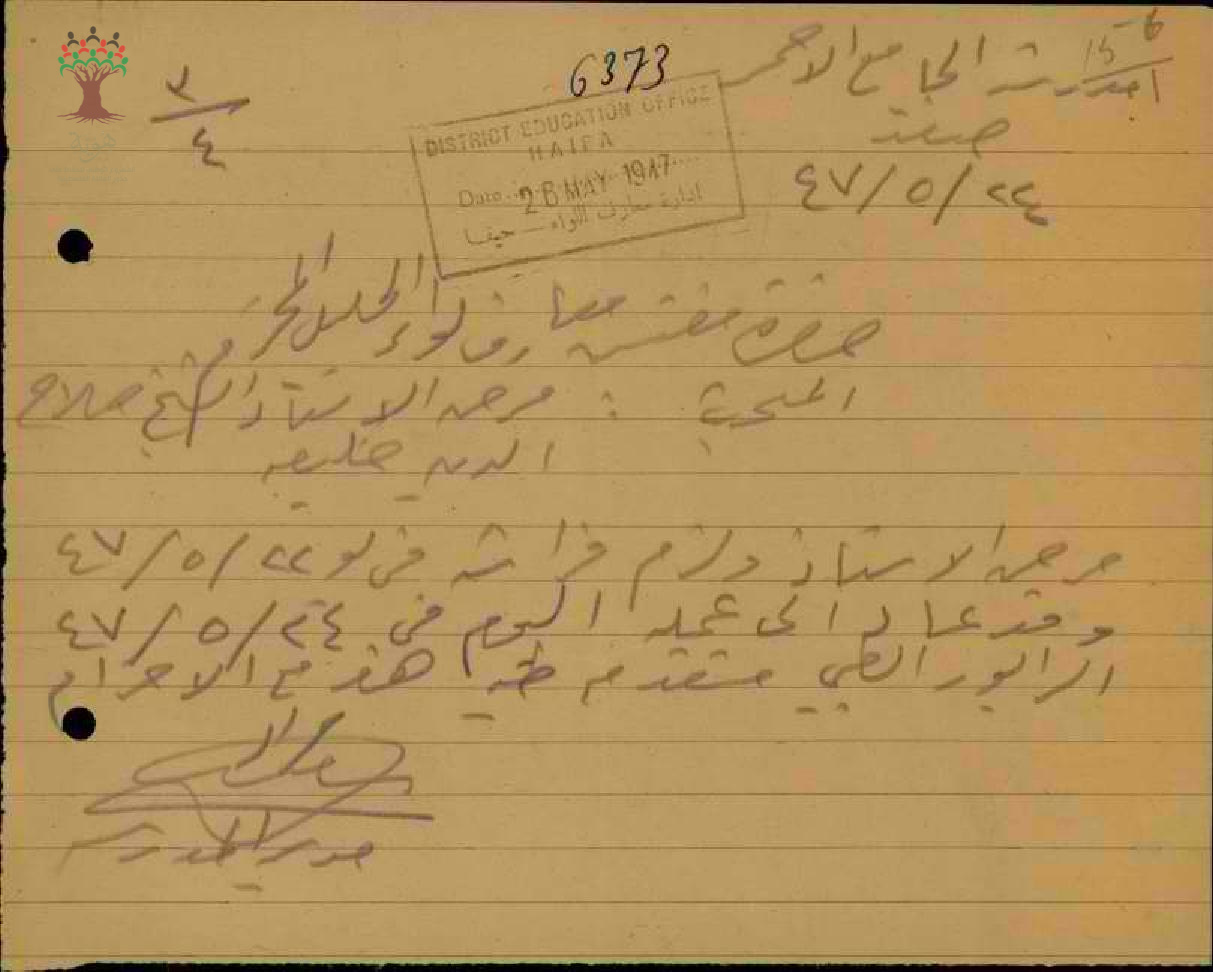 15-6
6373
مدرسة الجامع الاحمر
صفد
٣/٤
DISTRICT EDUCATION OFFICE
HAIFA
Date 28 MAY 1947
ادارة معارف اللواء — حيفا
٢٤/٥/٤٧
حضرة مفتش معارف لواء الجليل المحترم
بواسطة
: مرض الاستاذ الشيخ صلاح
الدين خليفه
مرض الاستاذ ولزم فراشه في ٢٢/٥/٤٧
وقد عاد الى عمله اليوم في ٢٤/٥/٤٧
الرابور الطبي مقدم طيه هذا مع الاحترام
مدير المدرسة